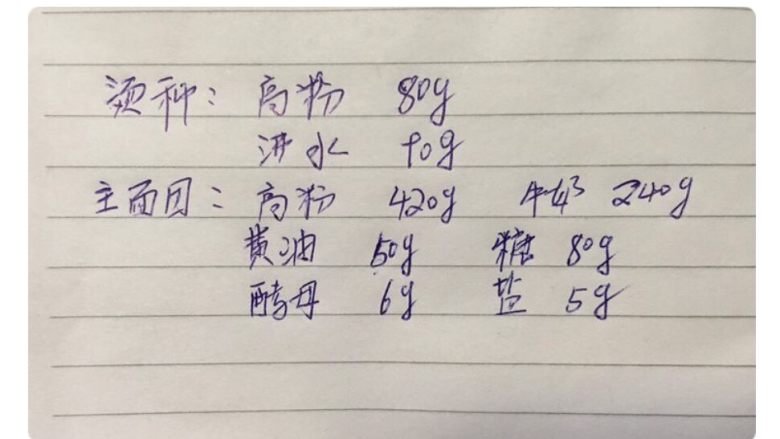 烫种: 高粉 80g
水
主面团: 高粉 420g 牛奶 240g
黄油 50g 糖 80g
酵母 6g 盐 5g